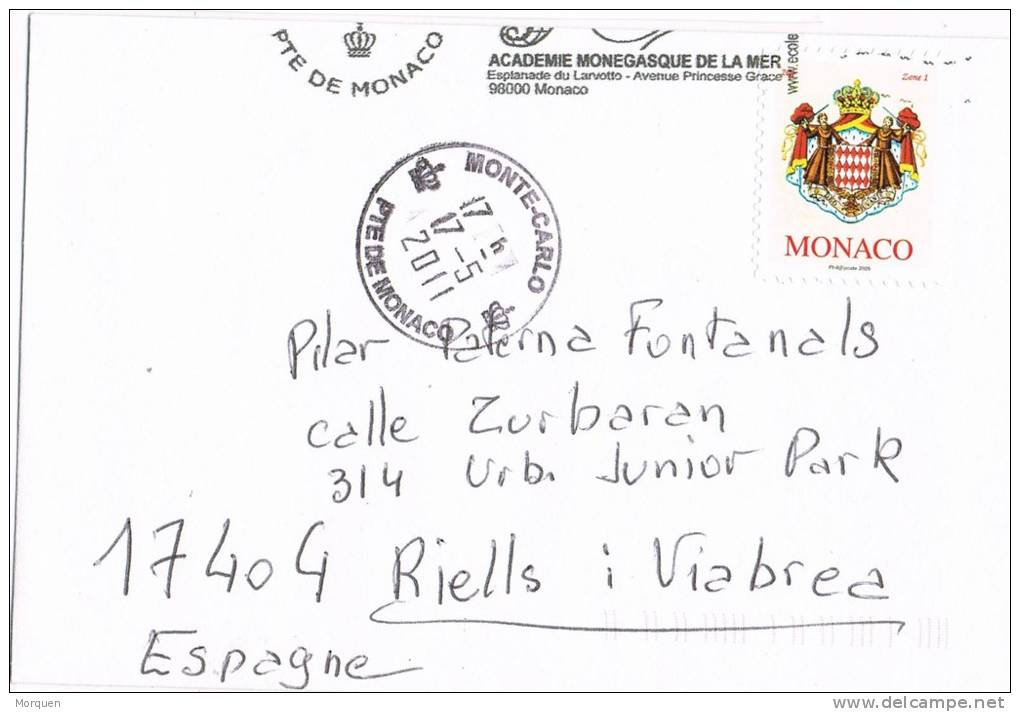 PTE DE MONACO
ACADEMIE MONEGASQUE DE LA MER
Esplanade du Larvotto - Avenue Princesse Grace
98000 Monaco
www.ecole
Zone 1
MONACO
MONTE-CARLO
17 h
17-5
2011
PTE DE MONACO
Pilar Paterna Fontanals
calle Zurbaran
314 Urb. Junior Park
17404 Riells i Viabrea
Espagne
Morquen
www.delcampe.net